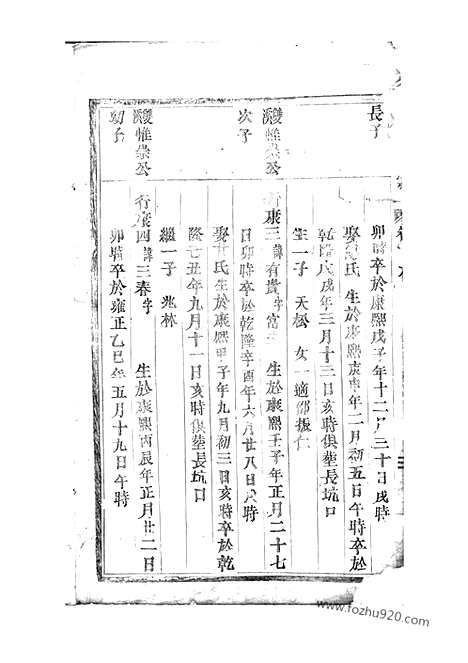 長子
卯時卒於康熙戊子年十二月三十日戌時
娶 氏 生於康熙庚申年二月初五日午時卒於
乾隆 戌年三月十三日亥時俱塋長坑口
生一子 天松 女一適鄒振仁
惟崇公 行康三 諱有貴字富 生於康熙壬子年正月二十七
次子 日卯時卒於乾隆辛酉年六月廿八日 時
娶 氏生於康熙甲子年九月初三日亥時卒於乾
隆 丑年九月十一日亥時俱塋長坑口
繼一子 兆林
惟崇公 行康四 諱三春字 生於康熙丙辰年正月廿二日
幼子 卯時卒於雍正乙巳年五月十九日午時
www.fozhu920.com